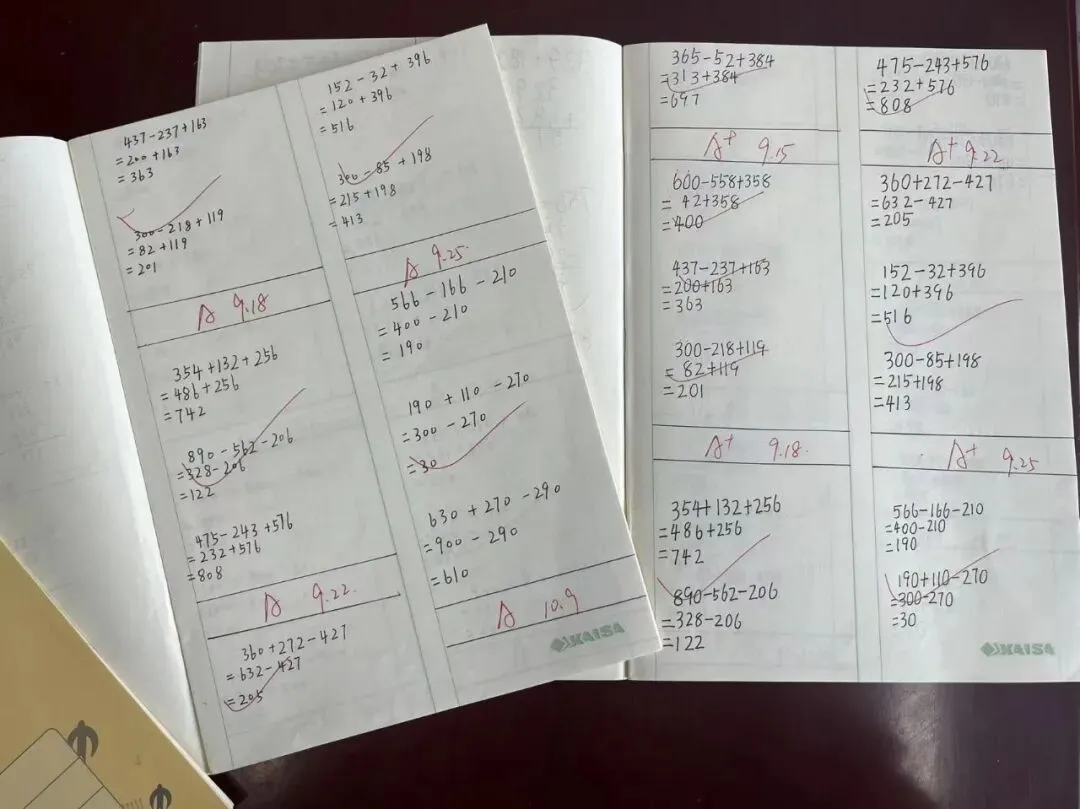 437-237+163
=200+163
=363
300-218+119
=82+119
=201
A 9.18
354+132+256
=486+256
=742
890-562-206
=328-206
=122
475-243+576
=232+576
=808
A 9.22
360+272-427
=632-427
=205
152-32+396
=120+396
=516
300-85+198
=215+198
=413
A 9.25
566-166-210
=400-210
=190
190+110-270
=300-270
=30
630+270-290
=900-290
=610
A 10.9
KAISA
365-52+384
=313+384
=697
A+ 9.15
600-558+358
=42+358
=400
437-237+163
=200+163
=363
300-218+119
=82+119
=201
A+ 9.18
354+132+256
=486+256
=742
890-562-206
=328-206
=122
475-243+576
=232+576
=808
A+ 9.22
360+272-427
=632-427
=205
152-32+396
=120+396
=516
300-85+198
=215+198
=413
A+ 9.25
566-166-210
=400-210
=190
190+110-270
=300-270
=30
KAISA